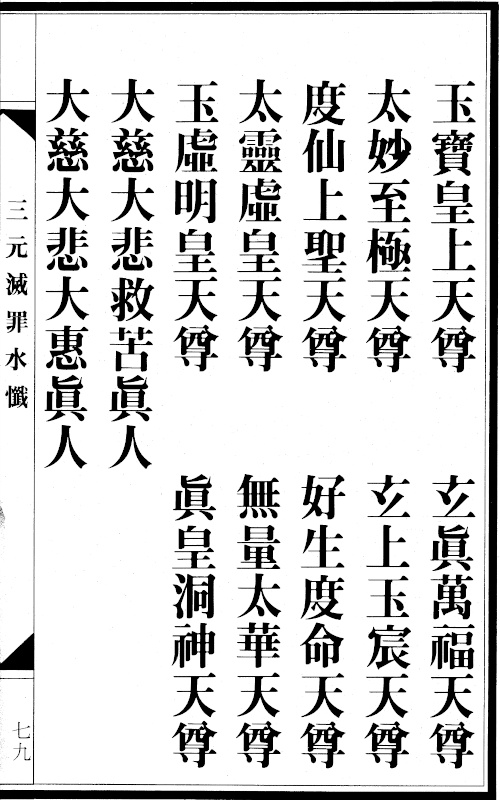 玉寶皇上天尊　玄眞萬福天尊
太妙至極天尊　玄上玉宸天尊
度仙上聖天尊　好生度命天尊
太靈虛皇天尊　無量太華天尊
玉虛明皇天尊　眞皇洞神天尊
大慈大悲救苦眞人
大慈大悲大惠眞人
三元滅罪水懺
七九